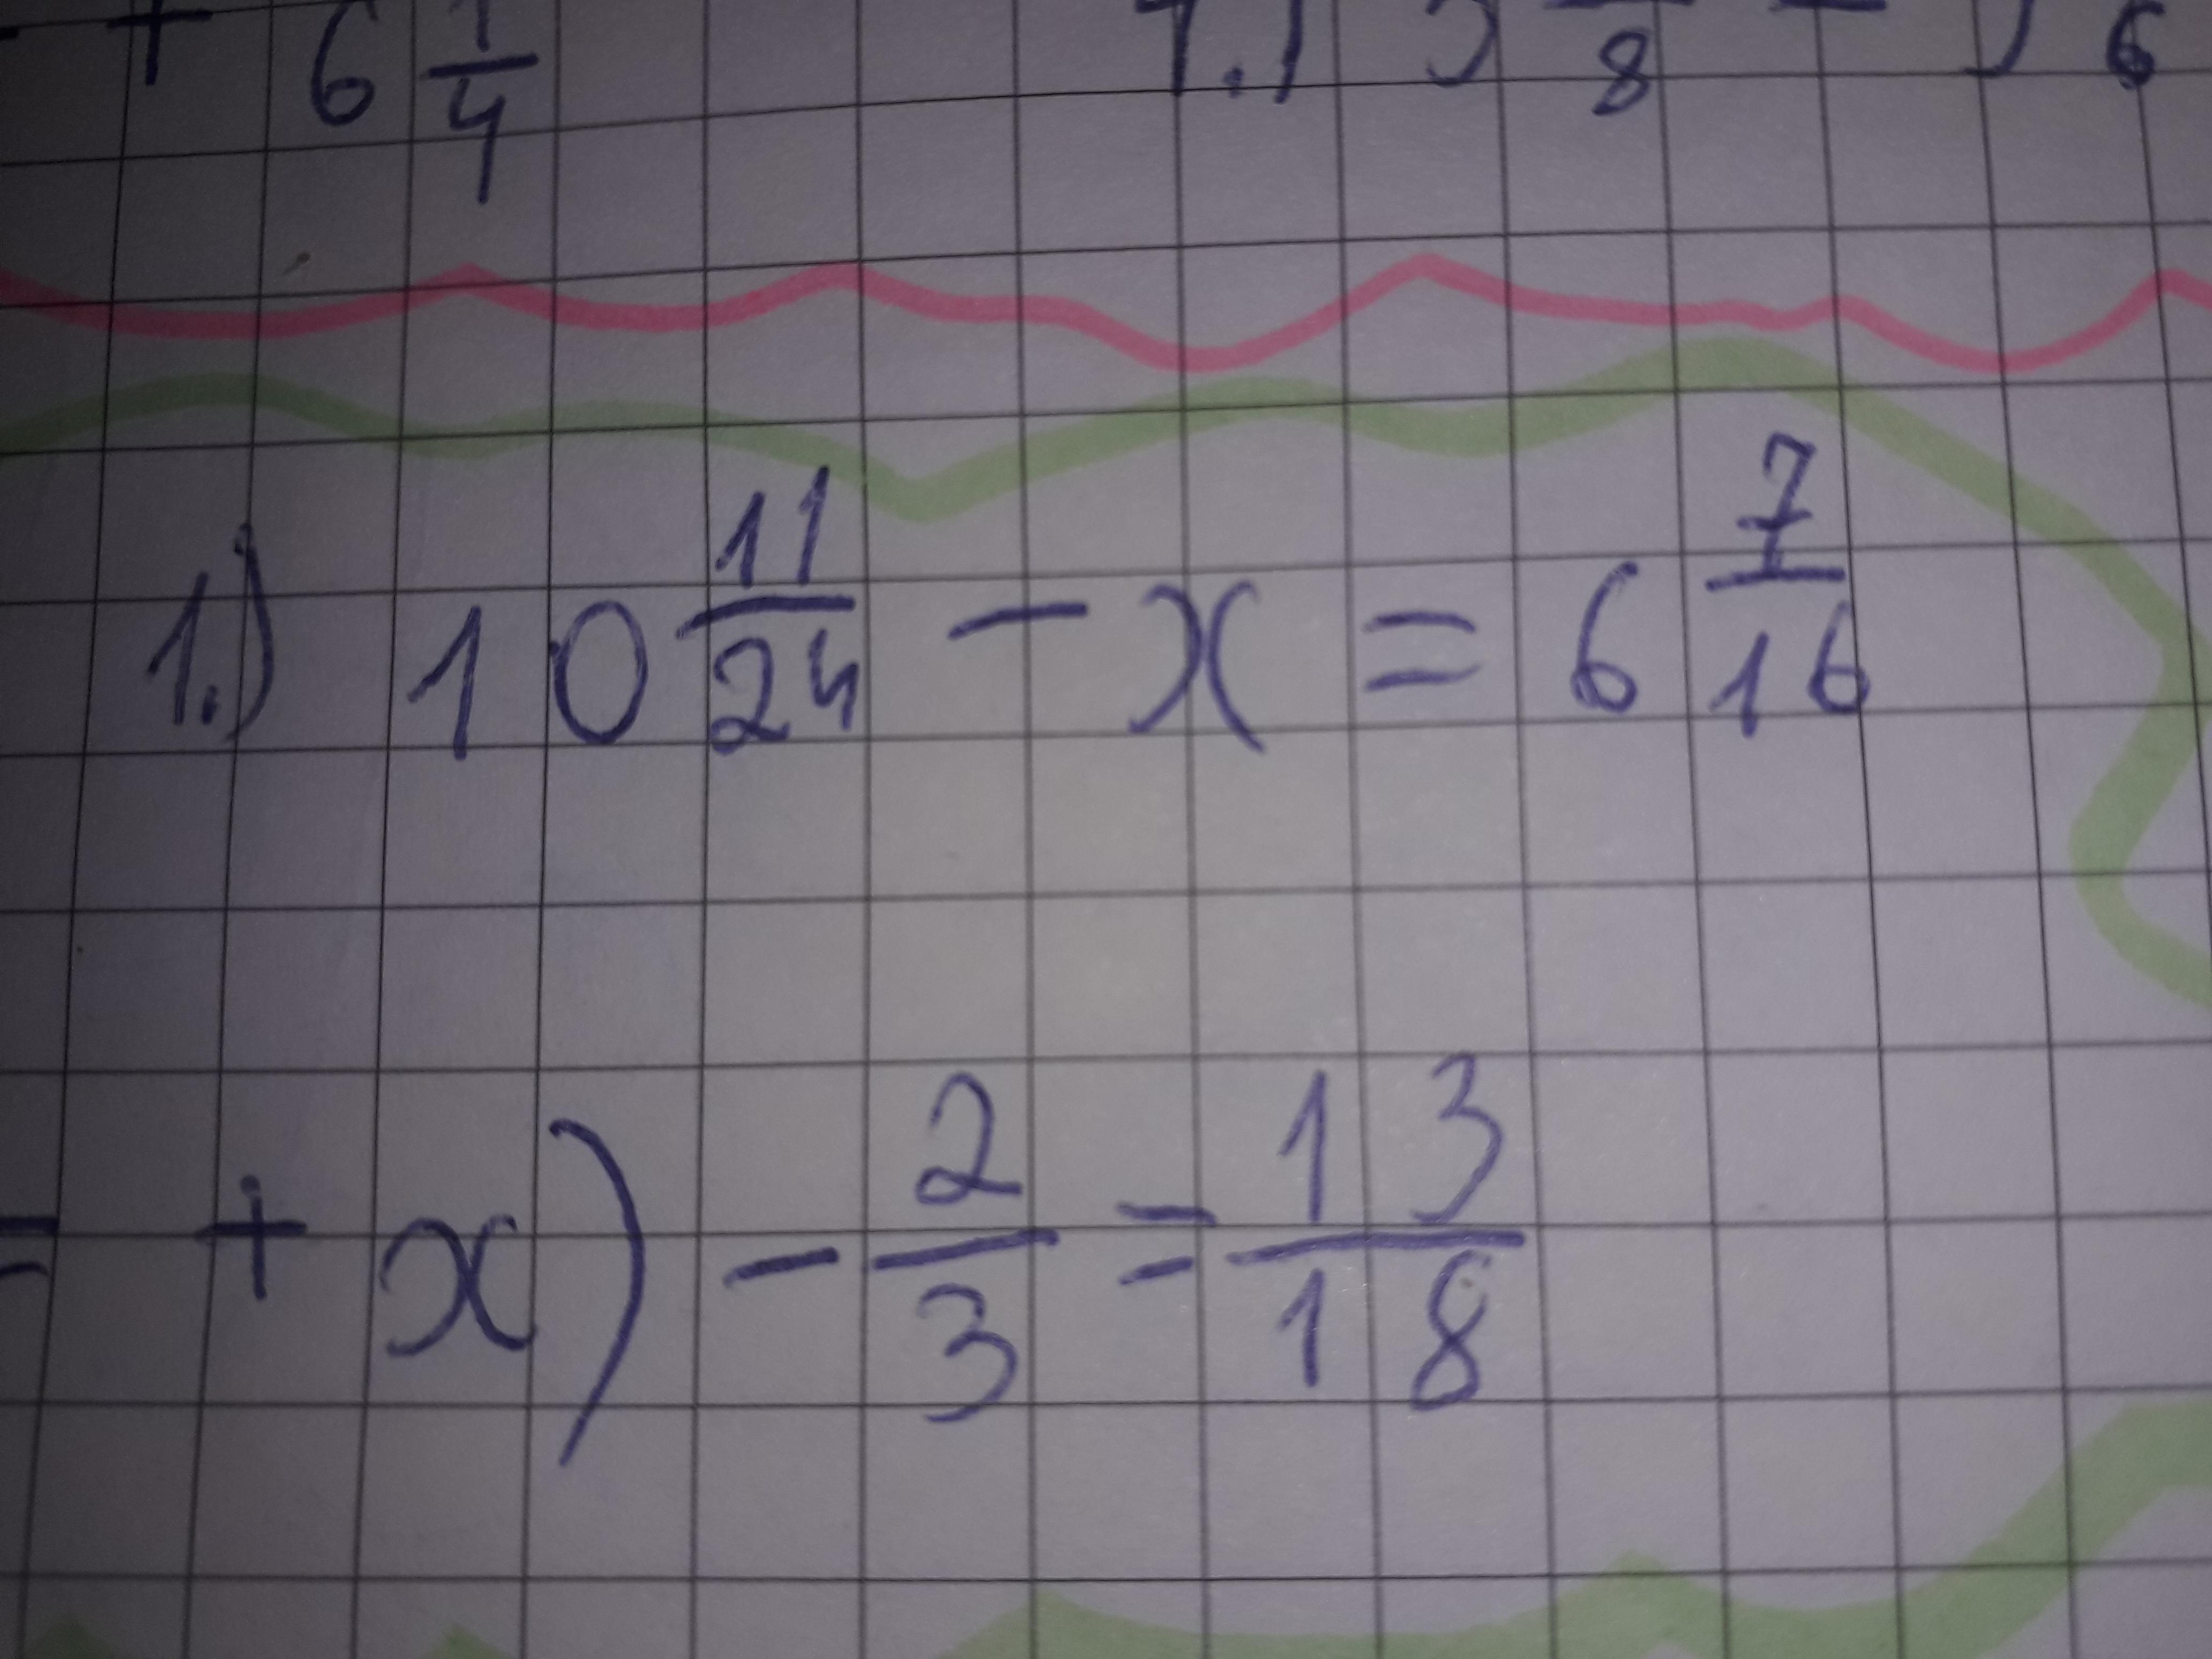 + 6 1/4
8 6
1.) 10 11/24 - x = 6 7/16
+ x) - 2/3 = 13/18